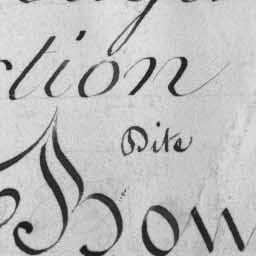 ction
Dits
Bow